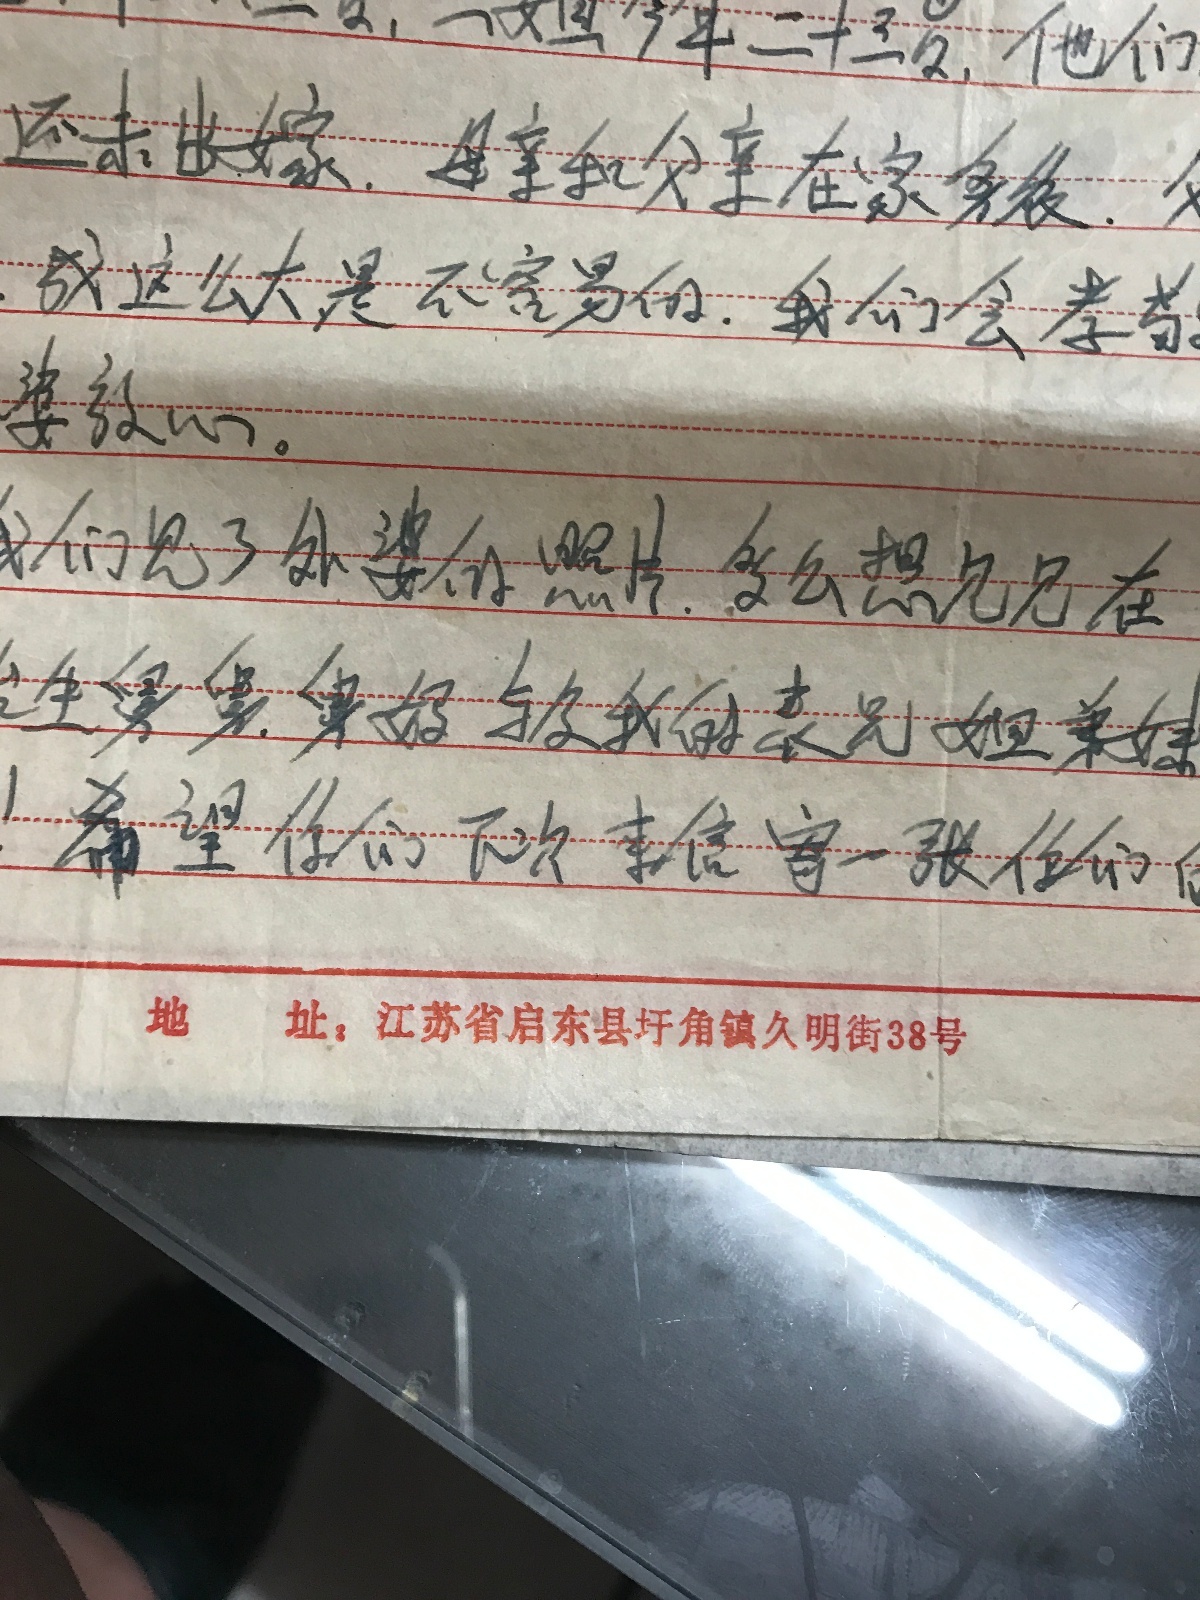 姐今年二十三岁，他们
还未出嫁．母亲和父亲在家务农．父
我这么大，是不容易的．我们会孝敬
婆放心。
我们见了外婆的照片．多么想见见在
舅舅．舅妈与及我的表兄姐弟妹
！希望你们下次来信寄一张你们的
地　址：江苏省启东县圩角镇久明街38号